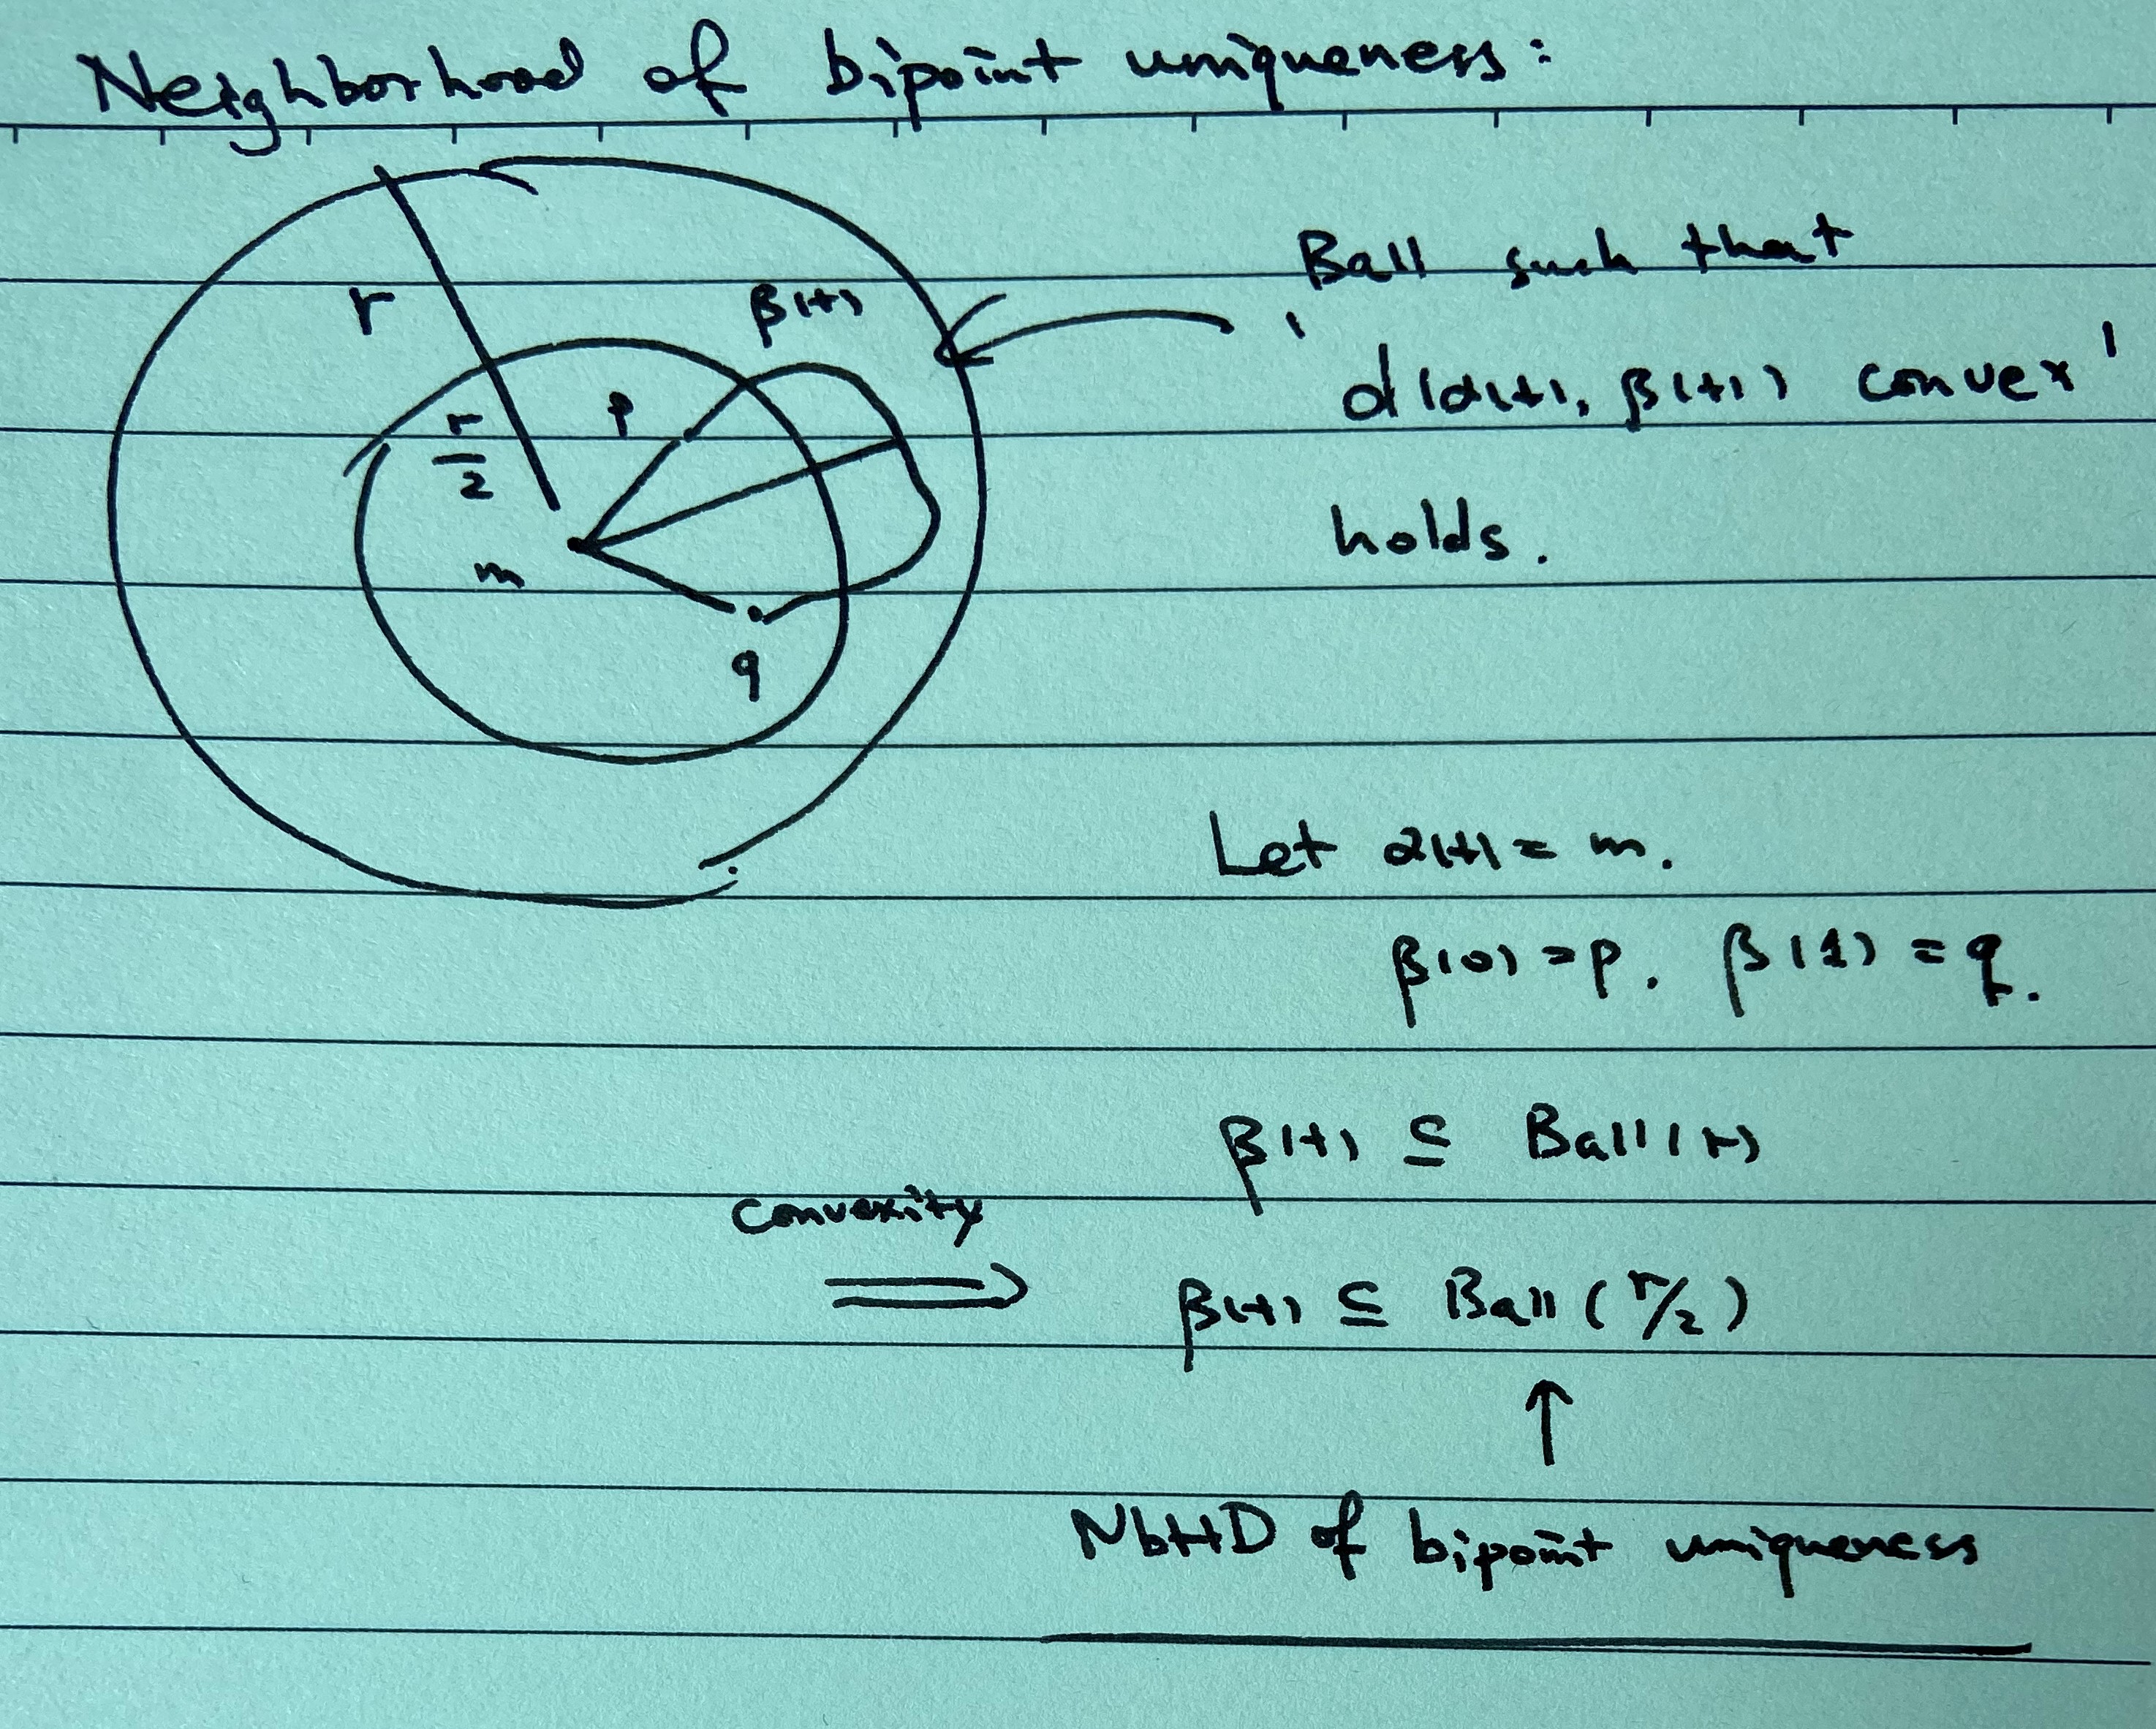 Neighborhood of bipoint uniqueness:
r
β(t)
r/2
p
m
q
Ball such that
' d(α(t), β(t)) convex '
holds.
Let α(t) = m.
β(0) = p. β(1) = q.
β(t) ⊆ Ball(r)
convexity
⟹ β(t) ⊆ Ball(r/2)
↑
NbHD of bipoint uniqueness